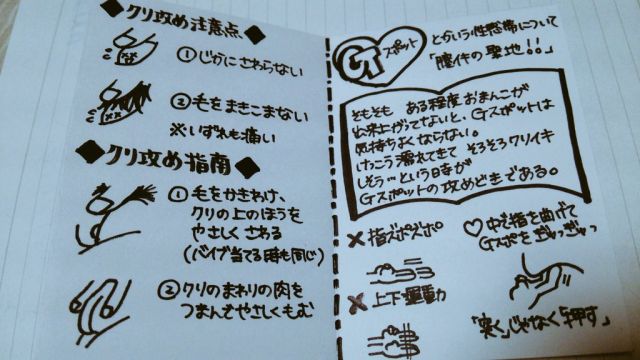 ◆クリ攻め注意点◆
①じかにさわらない
②毛をまきこまない
※いずれも痛い
◆クリ攻め指南◆
①毛をかきわけ、
クリの上のほうを
やさしくさわる
(バイブ当てる時も同じ)
②クリのまわりの肉を
つまんでやさしくもむ
Gスポット
とかいう性感帯について
「膣イキの聖地!!」
そもそも ある程度おまんこが
出来上がってないと、Gスポットは
気持ちよくならない。
けっこう濡れてきて そろそろクリイキ
しそう…という日時が
Gスポットの攻めどきである。
×指ズボズボ
×上下運動
♡中で指を曲げて
Gスポをぎゅっぎゅっ
「突く」じゃなく「押す」